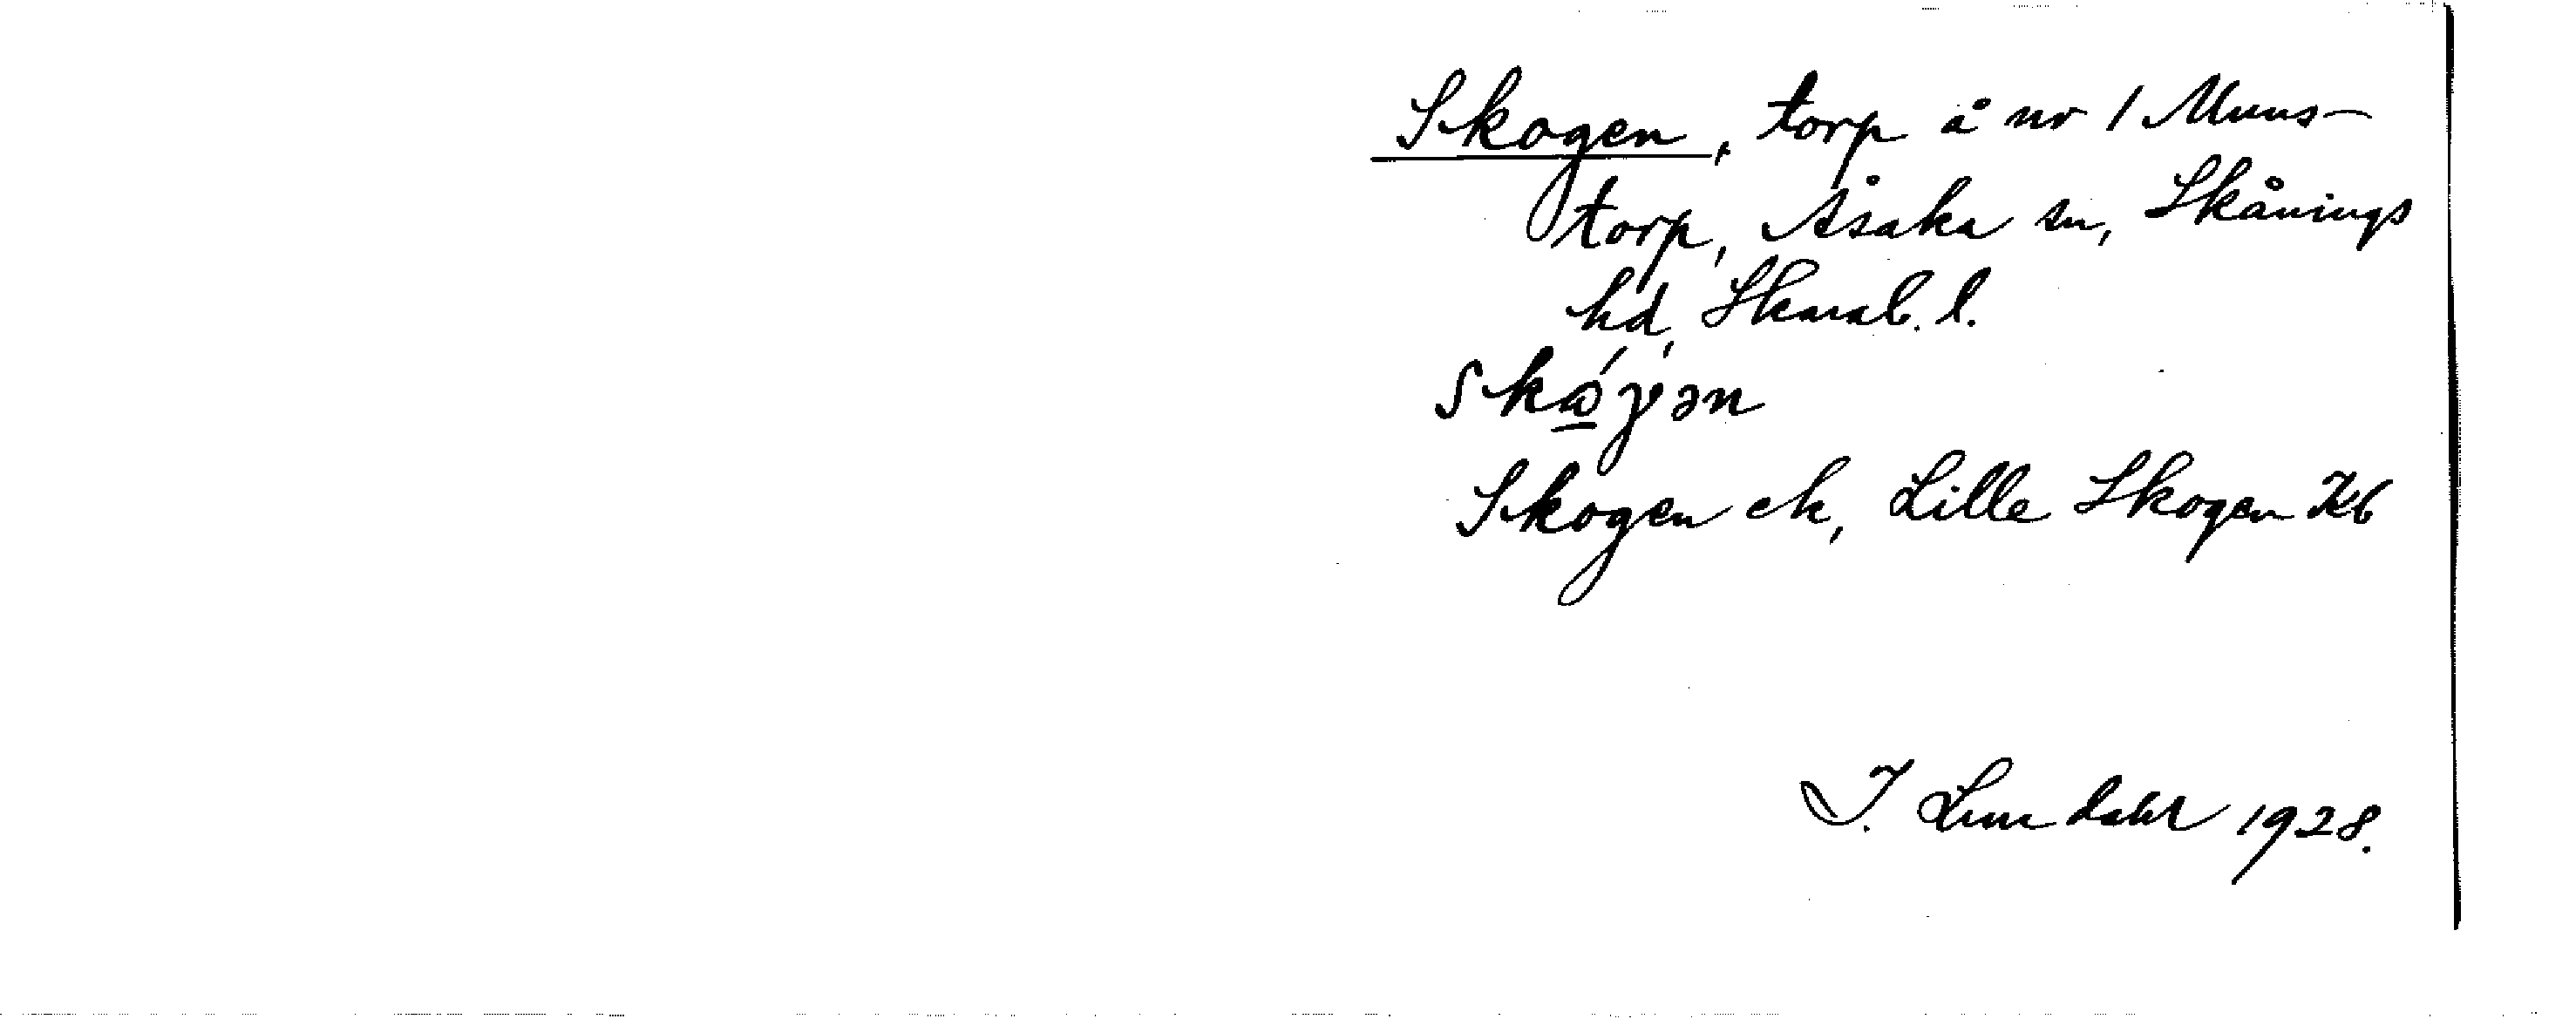 Skogen, torp å nr 1 Muns-
torp, Åsaka sn, Skånings
hd, Skarab. l.
skɷ́γən
Skogen ek, Lille Skogen Kb
I. Lundahl 1928.